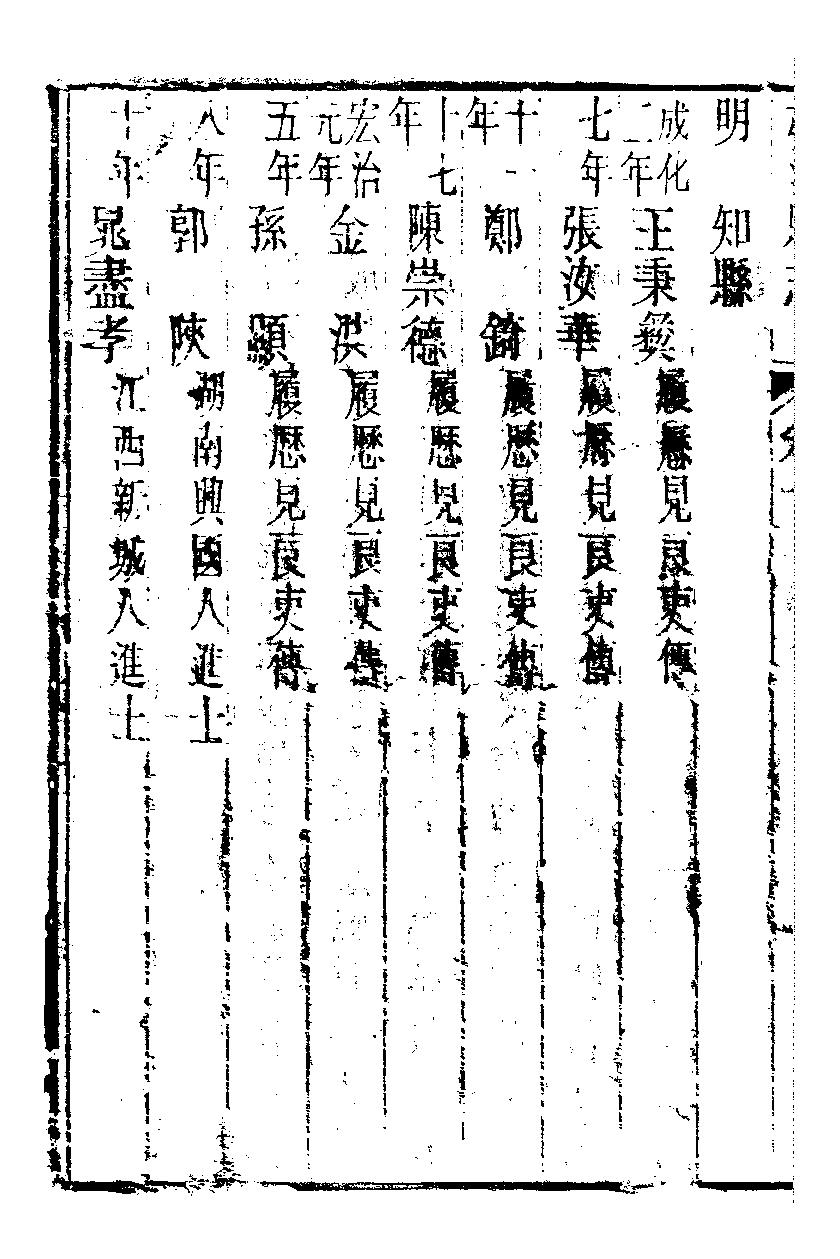 明　知縣
成化二年　王秉彝　履歷見良吏傳
七年　張汝華　履歷見良吏傳
十一年　鄭錡　履歷見良吏傳
十七年　陳崇德　履歷見良吏傳
宏治元年　金洪　履歷見良吏傳
五年　孫顯　履歷見良吏傳
八年　郭陝　湖南興國人進士
十年　晁盡孝　江西新城人進士